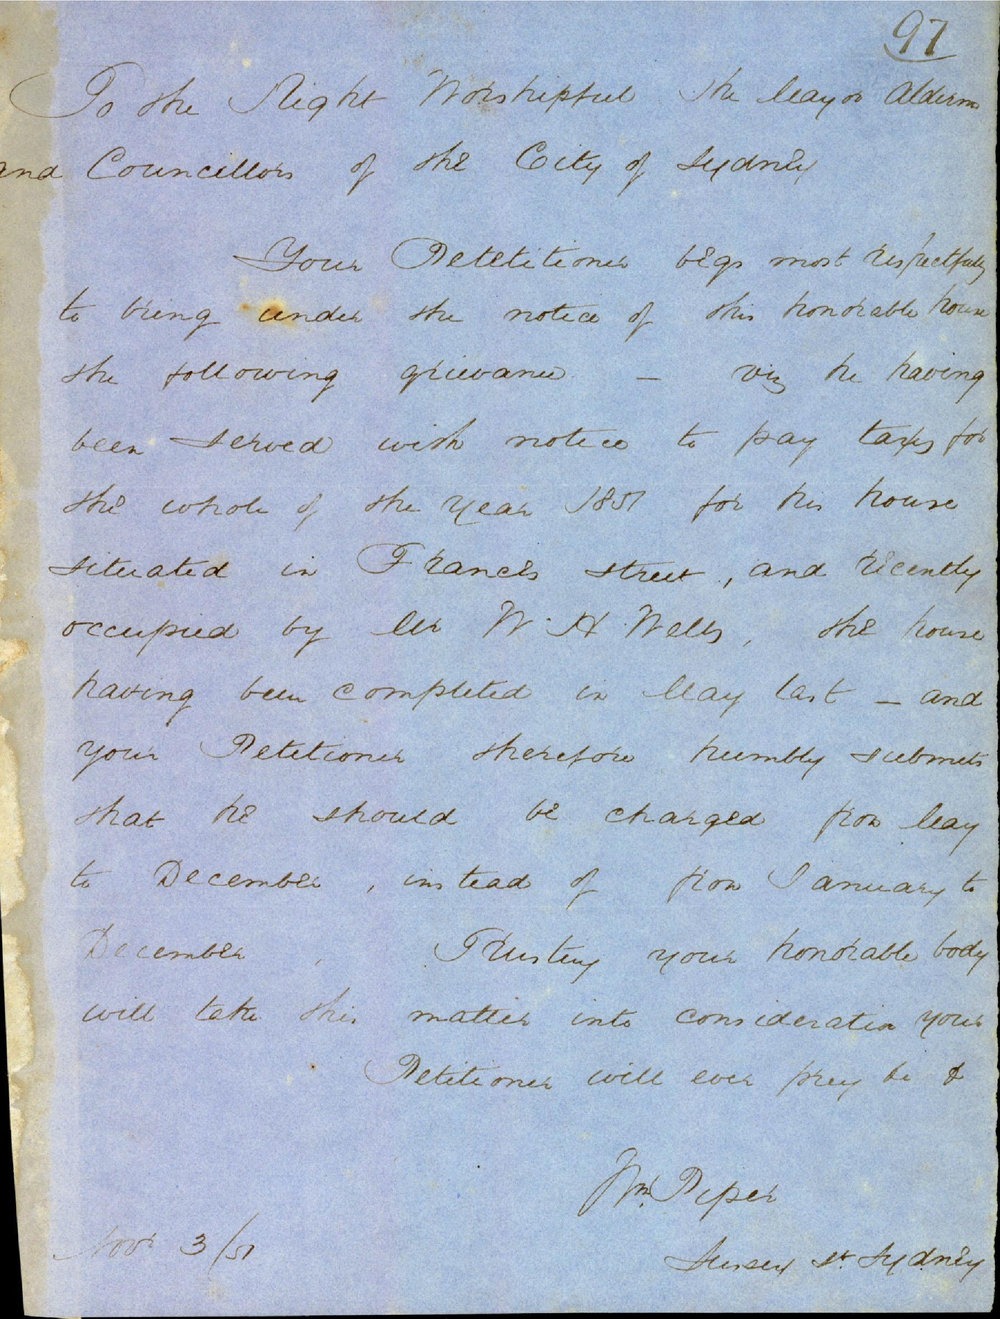 97
To the Right Worshipful The Mayor Alderm
and Councillors of the City of Sydney
Your Petetitioner begs most respectfully
to bring under the notice of this honorable house
the following grievance – viz he having
been served with notice to pay taxes for
the whole of the year 1851 for his house
situated in Francis street, and recently
occupied by Mr W. H. Wells, the house
having been completed in May last – and
your Petetioner therefore humbly submits
that he should be charged from May
to December, instead of from January to
December. Trusting your honorable body
will take this matter into consideration your
Petitioner will ever pray &c &
Wm. Piper
Novr 3/51
Sussex St Sydney